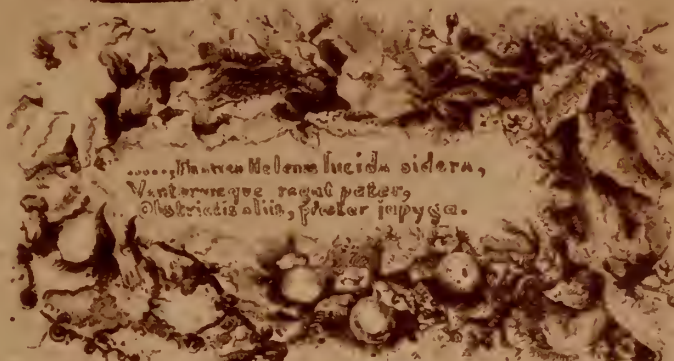 ......, Fratres Helenæ lucida sidera,
Ventorumque regat pater,
Obstrictis aliis, præter iapyga.